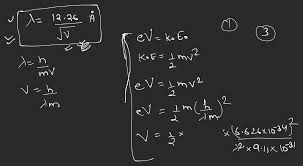 λ = 12.26 / √V Å
λ = h / mV
V = h / λm
eV = K.E.
K.E = 1/2 mv²
eV = 1/2 mv²
eV = 1/2 m (h / λm)²
V = 1/2 × × (6.626×10⁻³⁴)² / λ² × 9.11 × 10⁻³¹
① ③